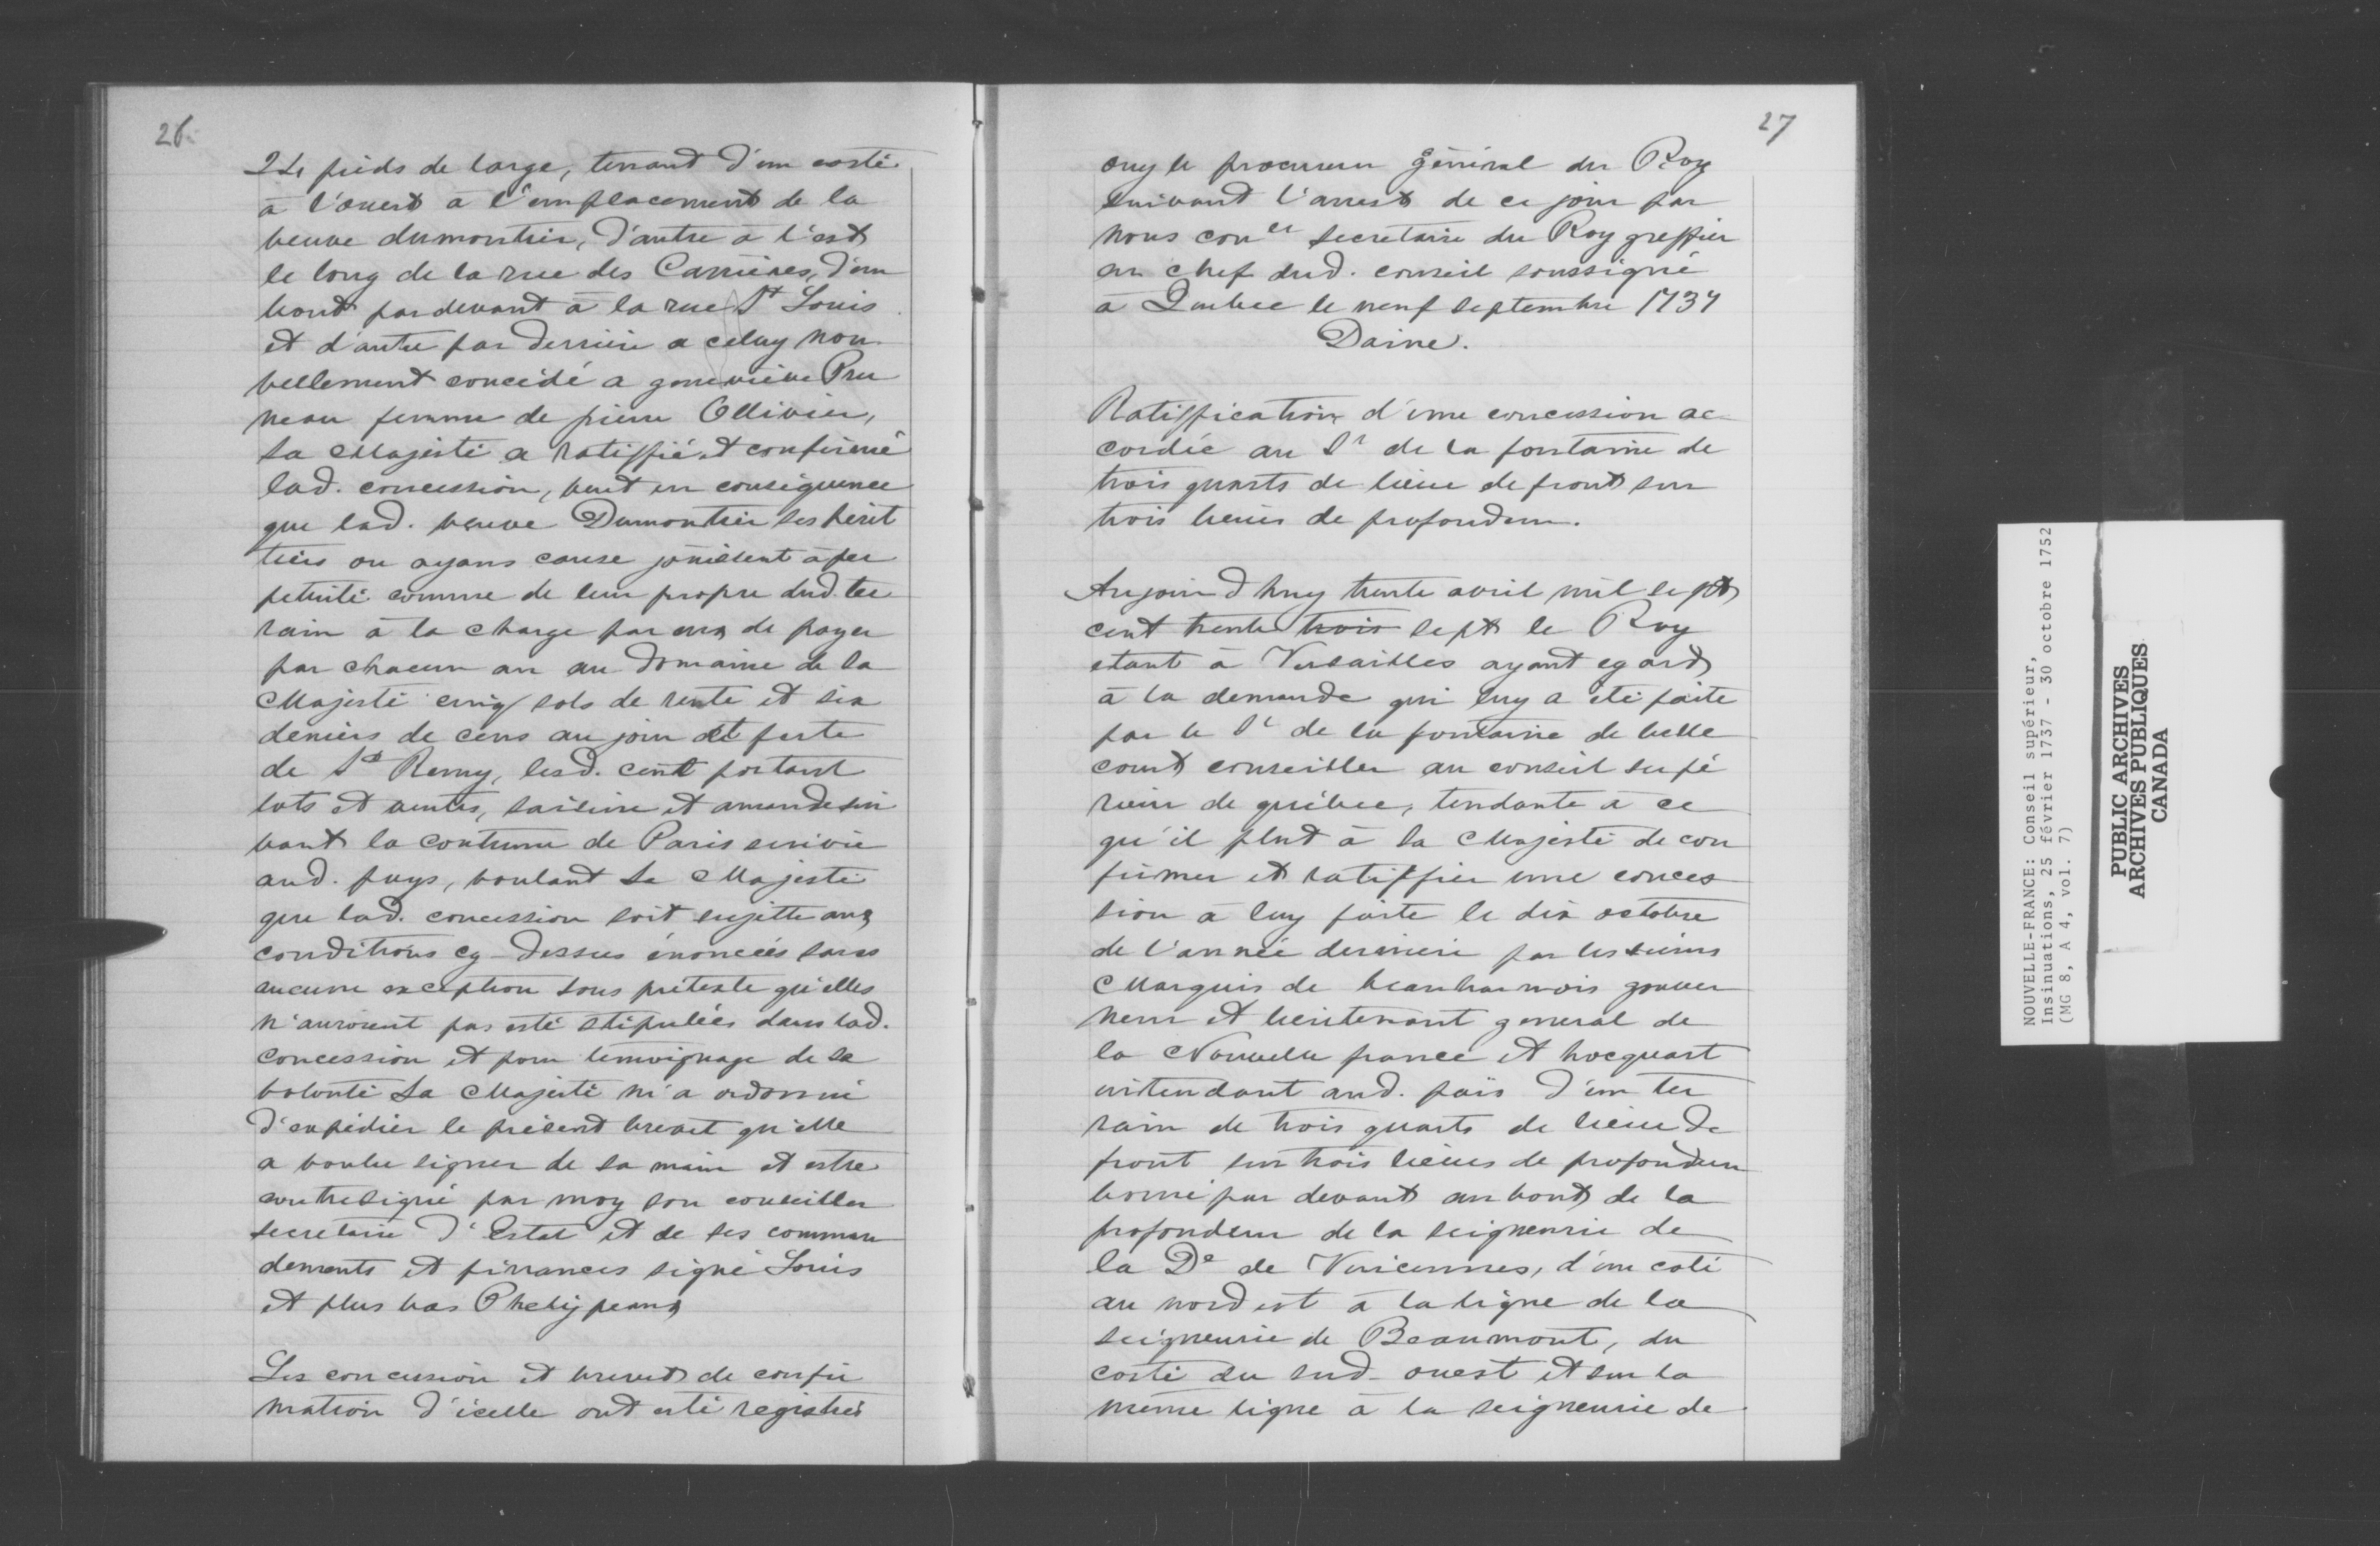 26
24 pieds de large, tenant d'un costé
à l'ouest à l'emplacement de la
veuve dumontier, d'autre à l'est
le long de la rue des Carrières, d'un
bout par devant à la rue St Louis
et d'autre par derrière a celuy nou
vellement concédé a geneviève Pru
neau femme de pierre Ollivier,
sa Majesté a ratiffié et confirmé
lad. concession, veut en conséquence
que lad. veuve Dumontier ses hérit
tiers ou ayans cause jouissent à per
pétuité comme de leur propre dud. ter
rain à la charge par eux de payer
par chacun an au Domaine de sa
Majesté cinq sols de rente et six
deniers de cens au jour et feste
de St Remy, lesd. cens portant
lots et ventes, saisine et amande sui
vant la coutume de Paris suivie
aud. pays, voulant Sa Majesté
que lad. concession soit sujette aux
conditions cy-dessus énoncées sans
aucune exception sous prétexte qu'elles
n'auroient pas esté stipulées dans lad.
concession et pour témoignage de sa
volonté Sa Majesté m'a ordonné
d'expédier le présent brevet qu'elle
a voulu signer de sa main et estre
contresigné par moy son conseiller
secretaire d'Estat et de ses comman
dements et finances signé Louis
et plus bas Phelypeaux
Les concession et brevet de confir
mation d'icelle ont esté registrés
27
ouy le procureur général du Roy
suivant l'arrest de ce jour par
nous coner secretaire du Roy greffier
en chef dud. conseil soussigné
à Québec le neuf septembre 1737
Daine.
Ratiffication d'une concession ac
cordée au Sr de la fontaine de
trois quarts de lieue de front sur
trois lieues de profondeur.
Aujourd'huy trente avril mil sept
cent trente trois sept le Roy
étant à Versailles ayant egard
à la demande qui luy a été faite
par le Sr de la fontaine de belle
court conseiller au conseil supé
rieur de québec, tendante à ce
qu'il plut à Sa Majesté de con
firmer et ratiffier une conces
sion à luy faite le dix octobre
de l'année dernière par les sieurs
Marquis de beauharnois gouver
neur et lieutenant general de
la Nouvelle france et hocquart
intendant aud. païs d'un ter
rain de trois quarts de lieue de
front sur trois lieues de profondeur
borné par devant au bout de la
profondeur de la seigneurie de
la De de Vincennes, d'un coté
au nord est à la ligne de la
seigneurie de Beaumont, du
costé du sud-ouest et sur la
même ligne à la seigneurie de
NOUVELLE-FRANCE: Conseil supérieur,
Insinuations, 25 février 1737 - 30 octobre 1752
(MG 8, A 4, vol. 7)
PUBLIC ARCHIVES
ARCHIVES PUBLIQUES
CANADA